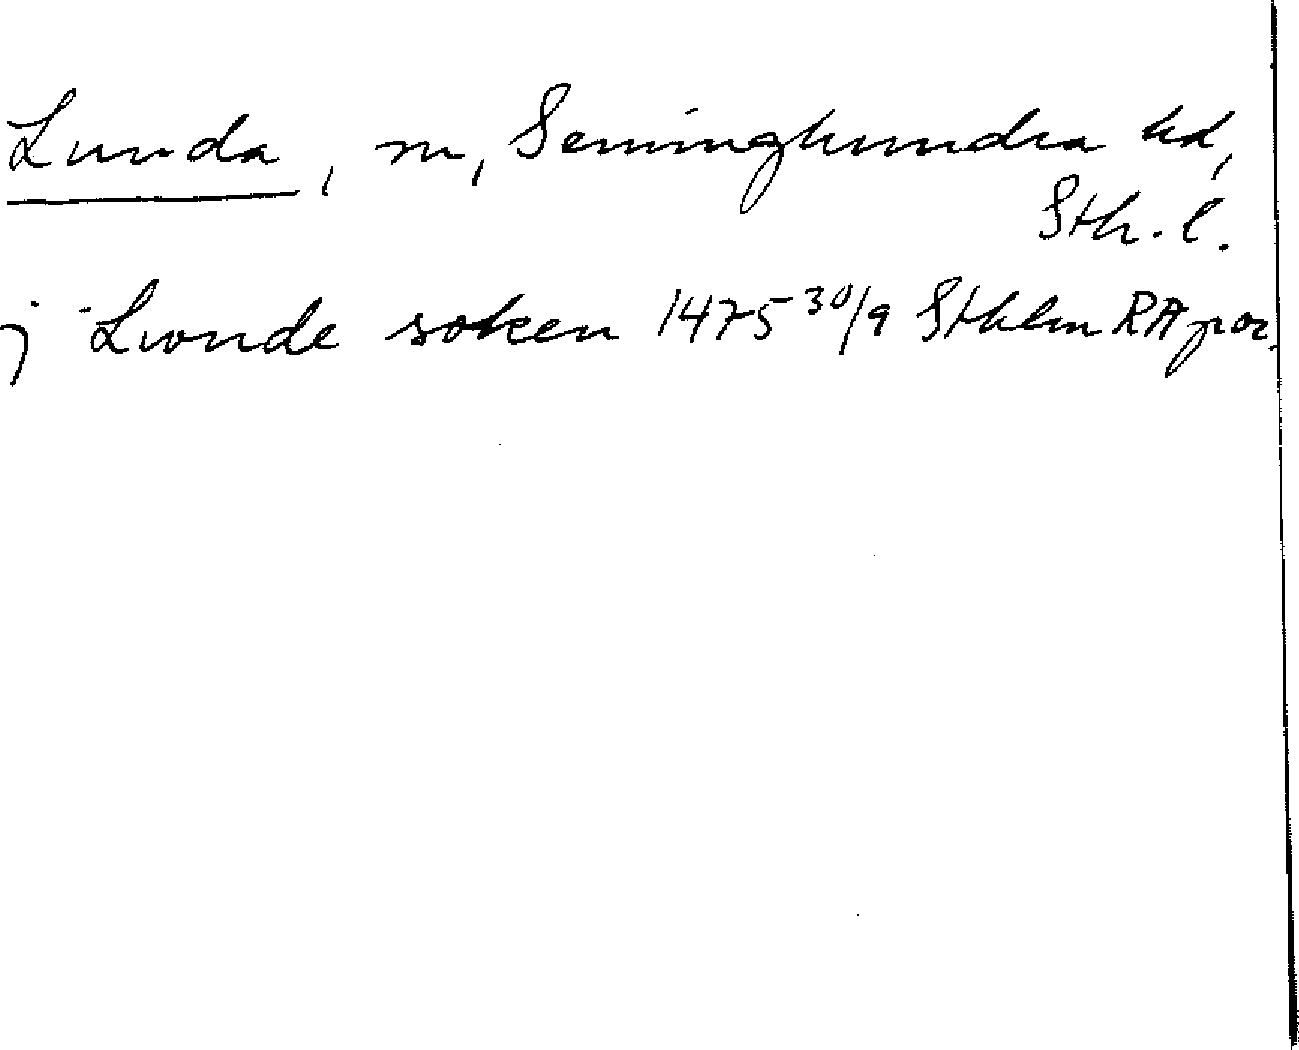 Lunda, sn, Seminghundra hd,
Sth. l.
j Lwnde soken 1475 30/9 Sthlm RA pap.